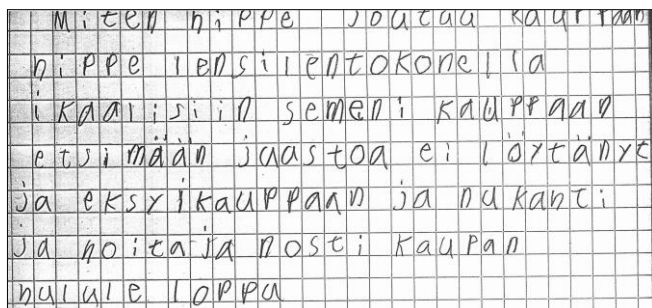 Miten hippe joutuu kauppaan
hippe lensi lentokonella
ikaalisiin semeni kauppaan
etsimään juastoa ei löytänyt
ja eksyi kauppaan ja nukanti
ja noitaja nosti kaupan
hululle loppu